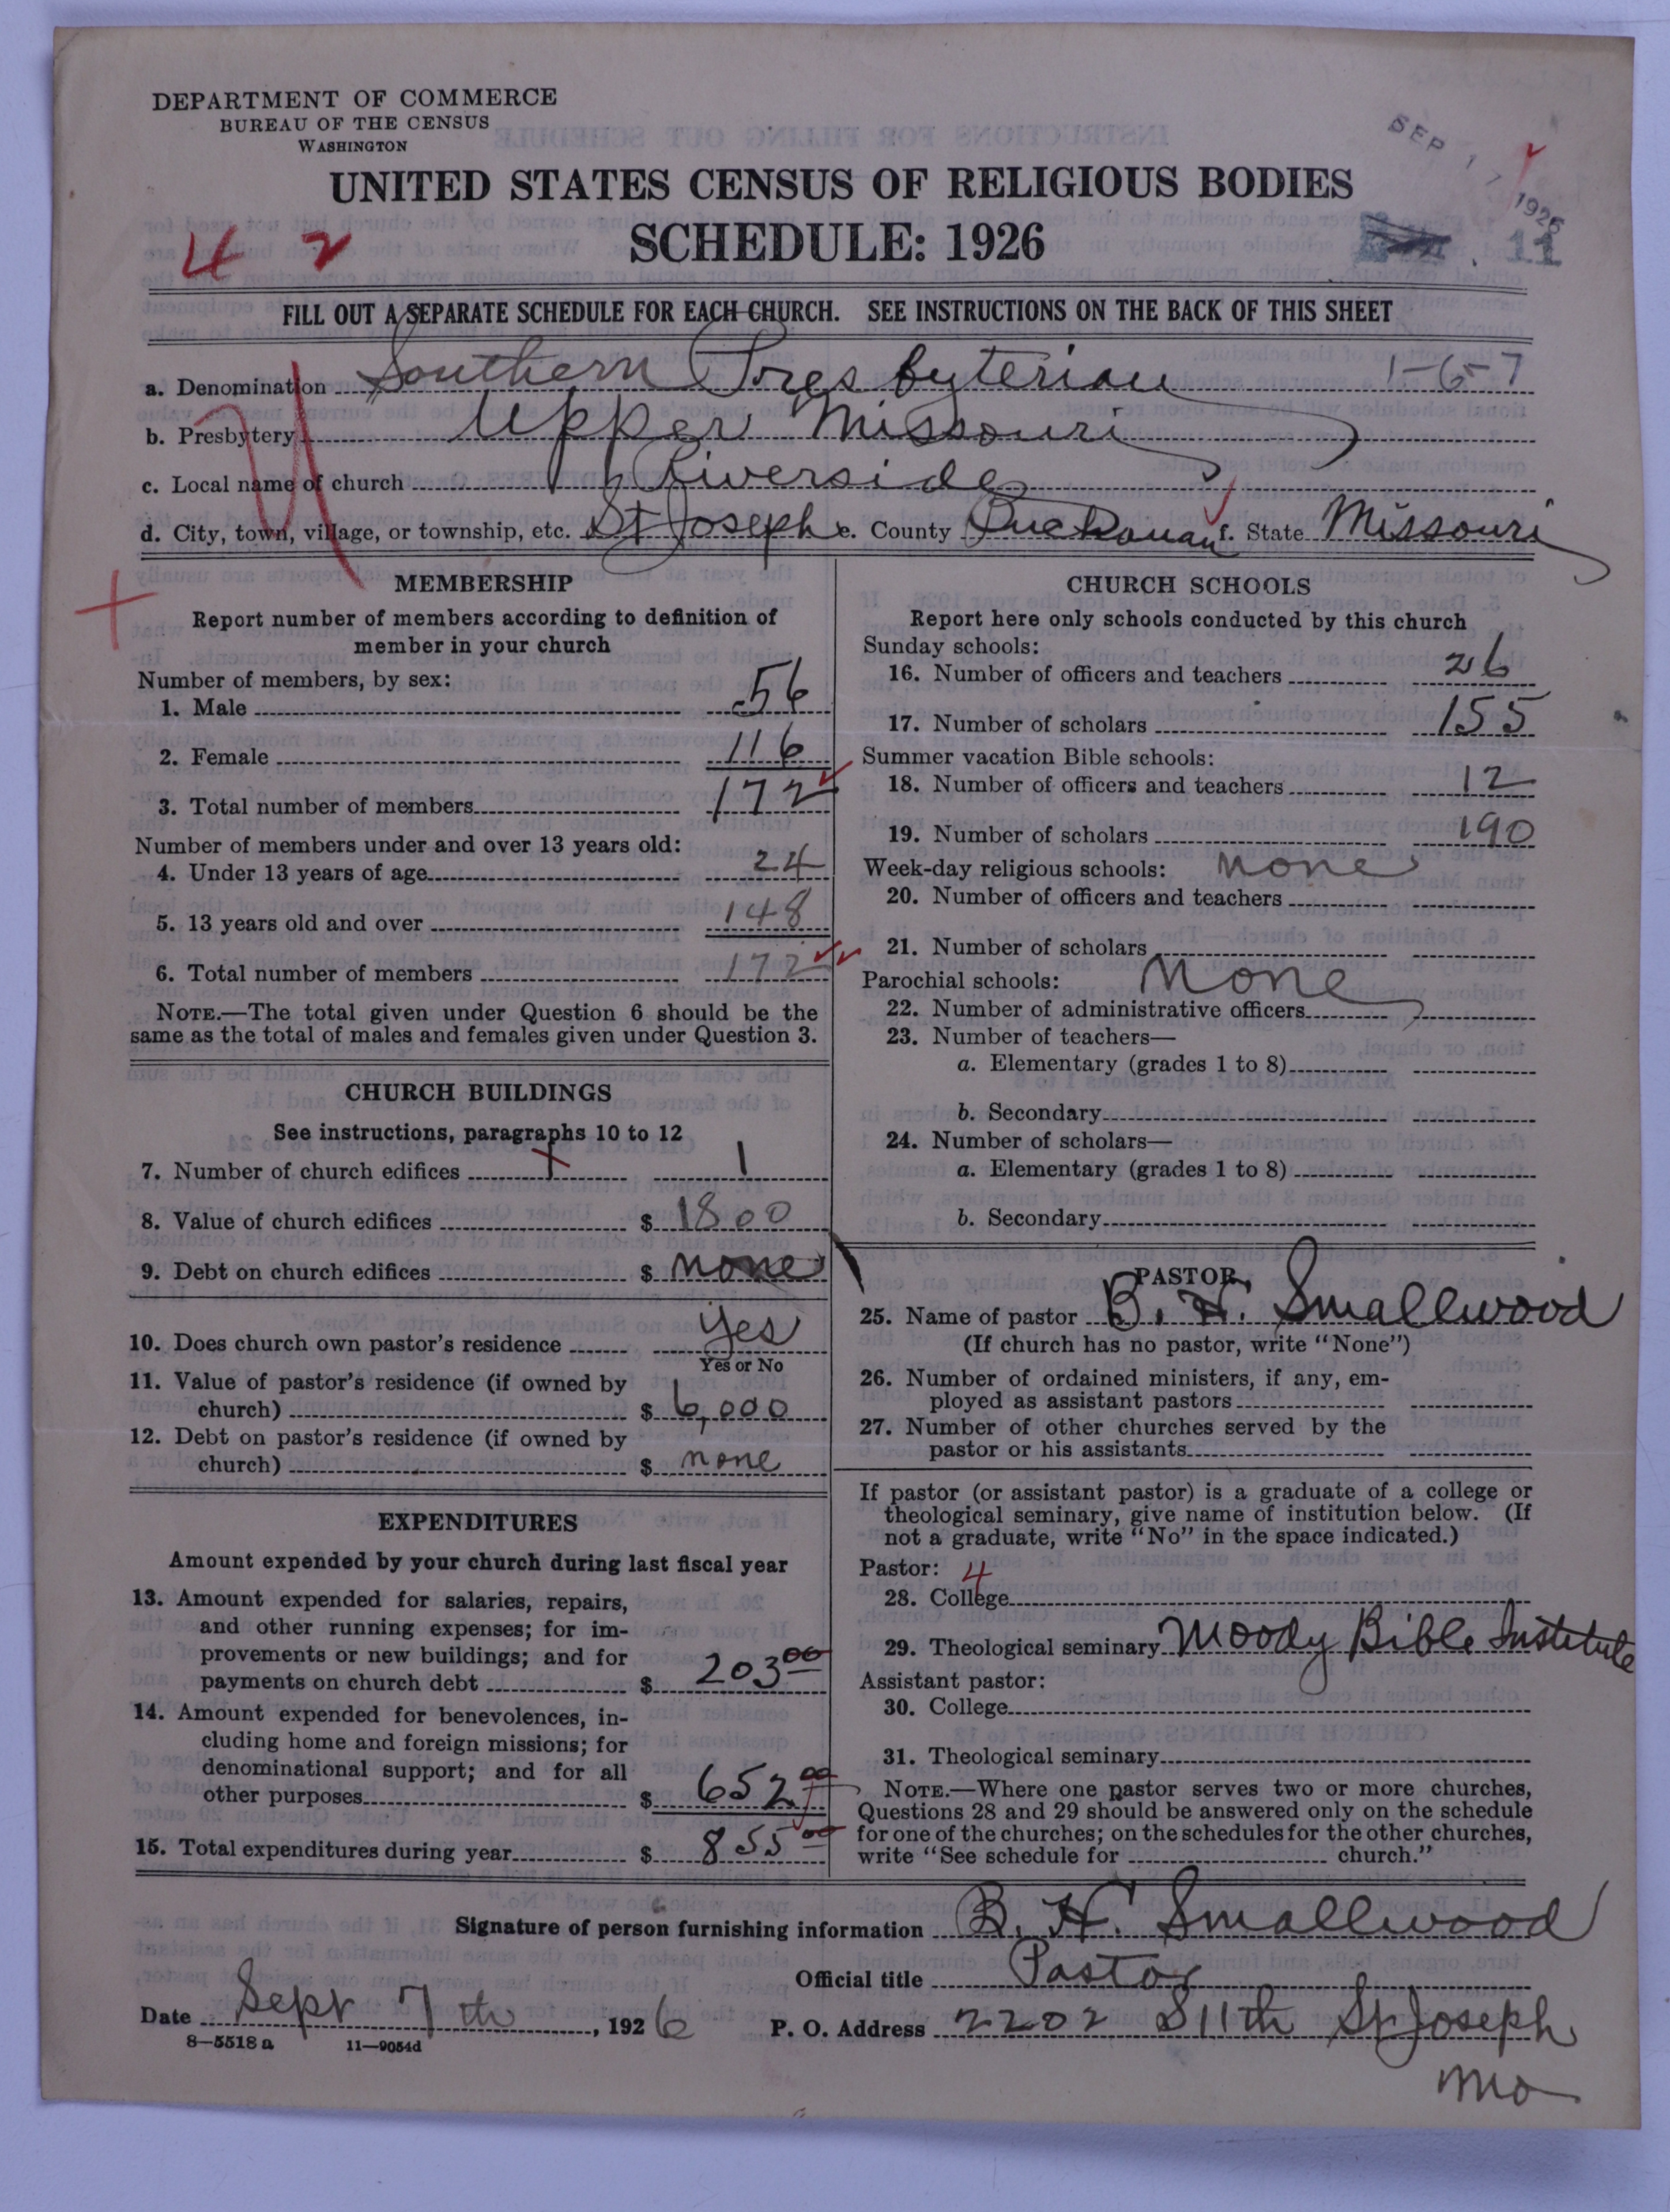 DEPARTMENT OF COMMERCE
BUREAU OF THE CENSUS
WASHINGTON
SEP 17 1926
UNITED STATES CENSUS OF RELIGIOUS BODIES
SCHEDULE: 1926
4 2
11
FILL OUT A SEPARATE SCHEDULE FOR EACH CHURCH. SEE INSTRUCTIONS ON THE BACK OF THIS SHEET
a. Denomination Southern Presbyterian 1-6-7
b. Presbytery Upper Missouri
c. Local name of church Riverside
d. City, town, village, or township, etc. St Joseph e. County Buchanan f. State Missouri
MEMBERSHIP
Report number of members according to definition of
member in your church
Number of members, by sex:
1. Male 56
2. Female 116
3. Total number of members 172
Number of members under and over 13 years old:
4. Under 13 years of age 24
5. 13 years old and over 148
6. Total number of members 172
NOTE.—The total given under Question 6 should be the
same as the total of males and females given under Question 3.
CHURCH BUILDINGS
See instructions, paragraphs 10 to 12
7. Number of church edifices 1
8. Value of church edifices $ 1800
9. Debt on church edifices $ none
10. Does church own pastor's residence yes
Yes or No
11. Value of pastor's residence (if owned by
church) $ 6,000
12. Debt on pastor's residence (if owned by
church) $ none
EXPENDITURES
Amount expended by your church during last fiscal year
13. Amount expended for salaries, repairs,
and other running expenses; for im-
provements or new buildings; and for
payments on church debt $ 203 00
14. Amount expended for benevolences, in-
cluding home and foreign missions; for
denominational support; and for all
other purposes $ 652 00
15. Total expenditures during year $ 855 00
CHURCH SCHOOLS
Report here only schools conducted by this church
Sunday schools:
16. Number of officers and teachers 26
17. Number of scholars 155
Summer vacation Bible schools:
18. Number of officers and teachers 12
19. Number of scholars 190
Week-day religious schools: none
20. Number of officers and teachers
21. Number of scholars
Parochial schools: None
22. Number of administrative officers
23. Number of teachers—
a. Elementary (grades 1 to 8)
b. Secondary
24. Number of scholars—
a. Elementary (grades 1 to 8)
b. Secondary
PASTOR
25. Name of pastor B. H. Smallwood
(If church has no pastor, write "None")
26. Number of ordained ministers, if any, em-
ployed as assistant pastors
27. Number of other churches served by the
pastor or his assistants
If pastor (or assistant pastor) is a graduate of a college or
theological seminary, give name of institution below. (If
not a graduate, write "No" in the space indicated.)
Pastor: 4
28. College
29. Theological seminary Moody Bible Institute
Assistant pastor:
30. College
31. Theological seminary
NOTE.—Where one pastor serves two or more churches,
Questions 28 and 29 should be answered only on the schedule
for one of the churches; on the schedules for the other churches,
write "See schedule for church."
Signature of person furnishing information B. H. Smallwood
Official title Pastor
Date Sept 7th, 1926 P. O. Address 2202 S 11th St Joseph
Mo
8—5518 a 11—9054d